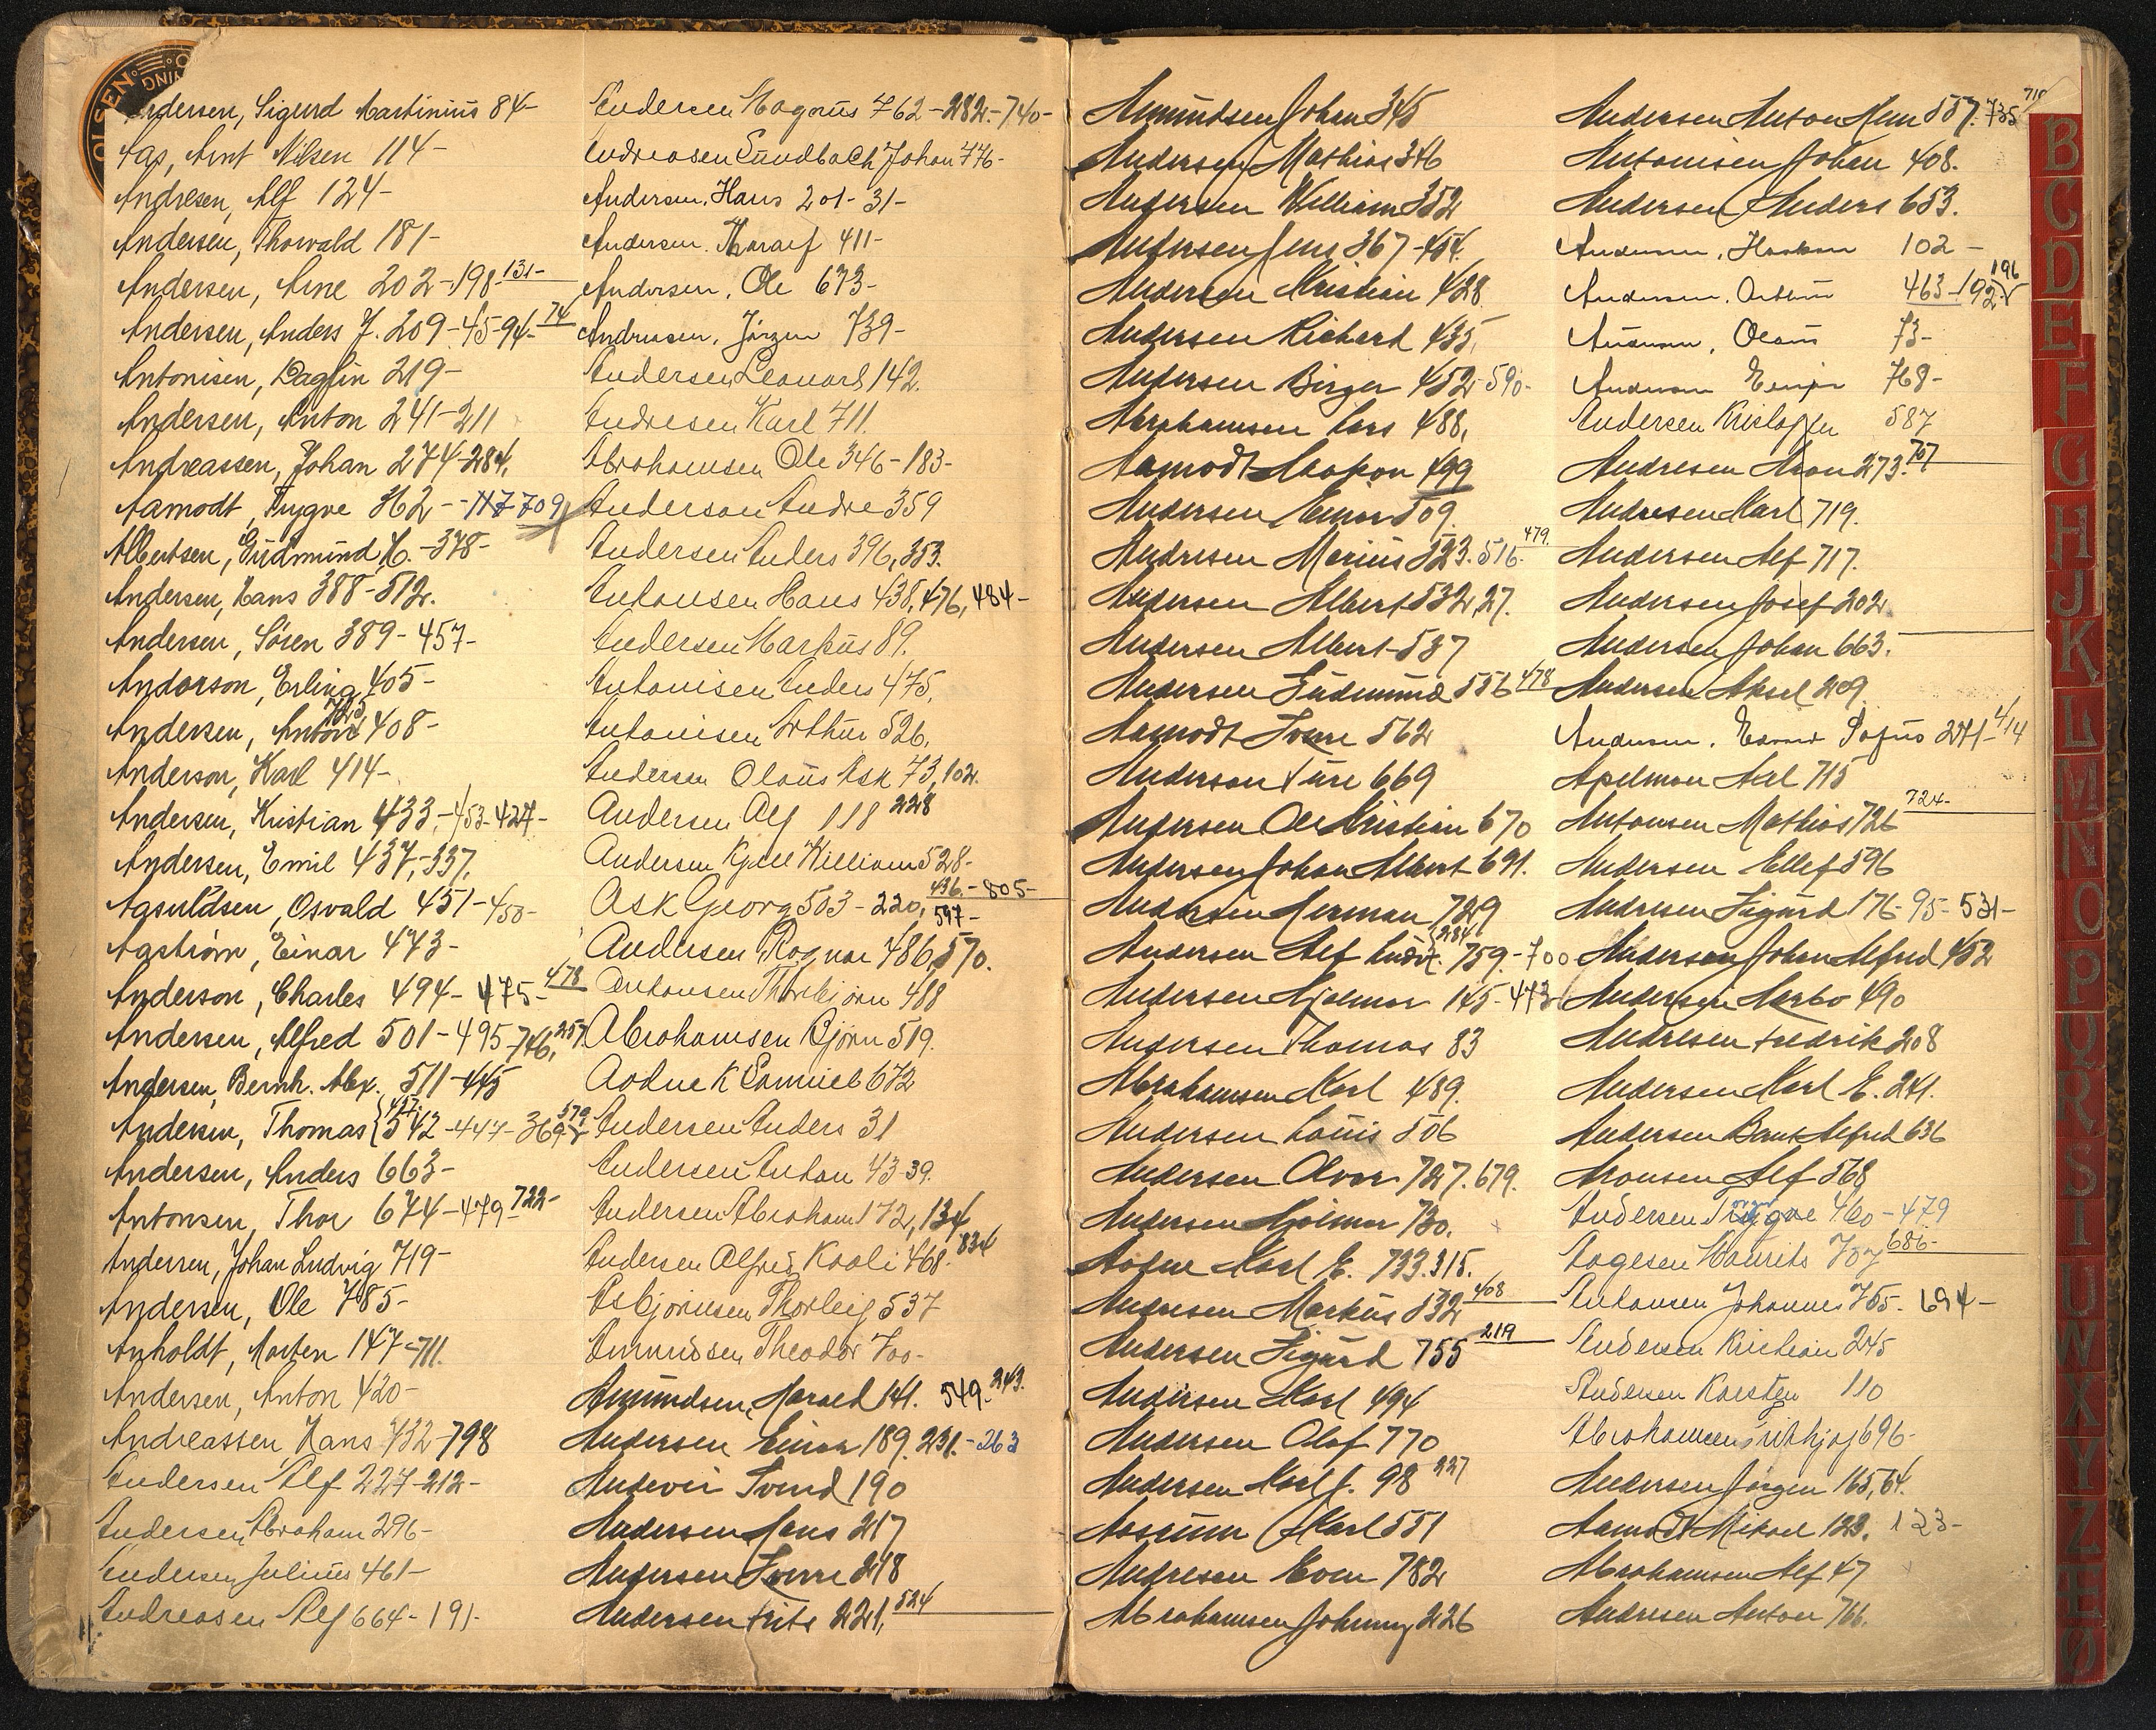 OLSEN
Andersen, Sigurd Martinius 84-
Aas, Arnt Nilsen 114-
Andresen, Alf 124-
Andersen, Thorvald 181-
Andersen, Arne 202-198-131-
Andersen, Anders J. 209-45-94-74
Antonisen, Dagfin 219-
Andersen, Anton 241-211
Andreassen, Johan 274-284,
Aamodt, Trygve 362- 709
Albertsen, Gudmund H. -378-
Andersen, Hans 388-512.
Andersen, Sören 389-457-
Andorson, Erling 405-
Andersen, Anton 408- 725
Anderson, Karl 414-
Andersen, Kristian 433,-453-427-
Andersen, Emil 437,-337,
Osvald 451-450-
Aaström, Einar 473-
Anderson, Charles 494-475-478
Andersen, Alfred 501-495-746,257
Andersen, Bernh. Alex. 511-445
Andersen, Thomas 542-447-369 457 579
Andersen, Anders 663-
Antonsen, Thor 674-479-722-
Andersen, Johan Ludvig 719-
Andersen, Ole 785-
Anholdt, Morten 147-711.
Andersen, Anton 420-
Andreassen, Hans 732-798
Andersen Alf 227-212-
Andersen Abraham 296-
Andersen Julius 461-
Andreasen Alf 664-191-
Andersen Magnus 762-282-740-
Andreasen Sundbach Johan 776-
Andersen, Hans 201-31-
Andersen, Thoralf 411-
Andersen, Ole 673-
Andreasen, Jörgen 739-
Andersen Leonard 142.
Andresen Karl 711.
Abrahamsen Ole 346-183-
Anderson Andre 359
Andersen Anders 396,353.
Antonsen Hans 438,476,484-
Andersen Markus 89.
Antonisen Anders 475,
Antonisen Arthur 526,
Andersen Olaus Ask 73,102.
Andersen Alf 118 228
Andersen Kjell William 528-
Ask Georg 503-220, 436.-805- 597-
Andersen Ragnar 486,570.
Antonsen Thorbjörn 488
Abrahamsen Björn 519.
Aadne K Samuel 672
Andersen Anders 31
Andersen Anton 43-39.
Andersen Abraham 172,134
Andersen Alfred Kaoli 468- 834
Asbjörnsen Thorleif 537
Amundsen Theodor 700-
Amundsen, Harald 141. 549-343.
Andersen Einar 189.231.-263
Svend 190
Andersen Hans 217
Andersen Sverre 218
Andersen Frits 221, 524
Amundsen Johan 345
Andersen Mathias 346
Andersen William 352
Andersen Jens 367-454.
Andersen Kristian 428
Andersen Richard 435,
Andersen Birger 452-590-
Abrahamsen Lars 488,
Aamodt Haakon 499
Andersen Einar 509.
Andresen Marius 523.516. 479.
Andersen Albert 532,27.
Andersen Albert 537
Andersen Gudmund 556 478
Aamodt Sverre 562
Anderson Ture 669
Andersen Ole Kristian 670
Andersen Johan Albert 691.
Andersen Herman 729
Andersen Alf Ludv. 759.-700 284
Andersen Hjalmar 145-473
Andersen Thomas 83
Abrahamsen Karl 489.
Andersen Louis 506
Andersen Alvar 727.679.
Andersen Hjalmar 730.
Aadne Karl E. 733.315.
Andersen Markus 532 408
Andersen Sigurd 755 219
Andersen Karl 494
Andersen Olaf 770
Andersen Karl J. 98 227
Karl 551
Andresen Even 782
Abrahamsen Johnny 226
Andersen Anton 557.735 710
Antonisen Johan 408.
Andersen Anders 653.
Andersen, Haakon 102-
Andersen, 463-192 196
73-
Andersen 768-
Andersen Kristoffer 587
Andresen 273.707
Andresen Karl 719.
Andersen Alf 717.
Andersen Josef 202
Andersen Johan 663.
Andersen Aksel 209
Andersen, Sofus 271-414
Apelman Axel 715
Antonsen Mathias 726 724-
Andersen Ellef 596
Andresen Sigurd 176-95-531-
Andersen Johan Alfred 452
Andersen 490
Andresen Fredrik 208
Andersen Karl E. 241.
Andersen Alfred 636
Aronsen Alf 568
Andersen 460-479
Aagesen Maurits 707 686-
Antonsen Johannes 755. 694-
Andersen Kristian 245
Andersen Karsten 110
Abrahamsen 696-
Andersen Jörgen 165,64.
Aamodt Mikael 123. 123-
Abrahamsen Alf 47
Andresen Anton 766.
B
C
D
E
F
G
H
J
K
L
M
N
O
P
Q
R
S
T
U
W
X
Y
Z
Æ
Ø